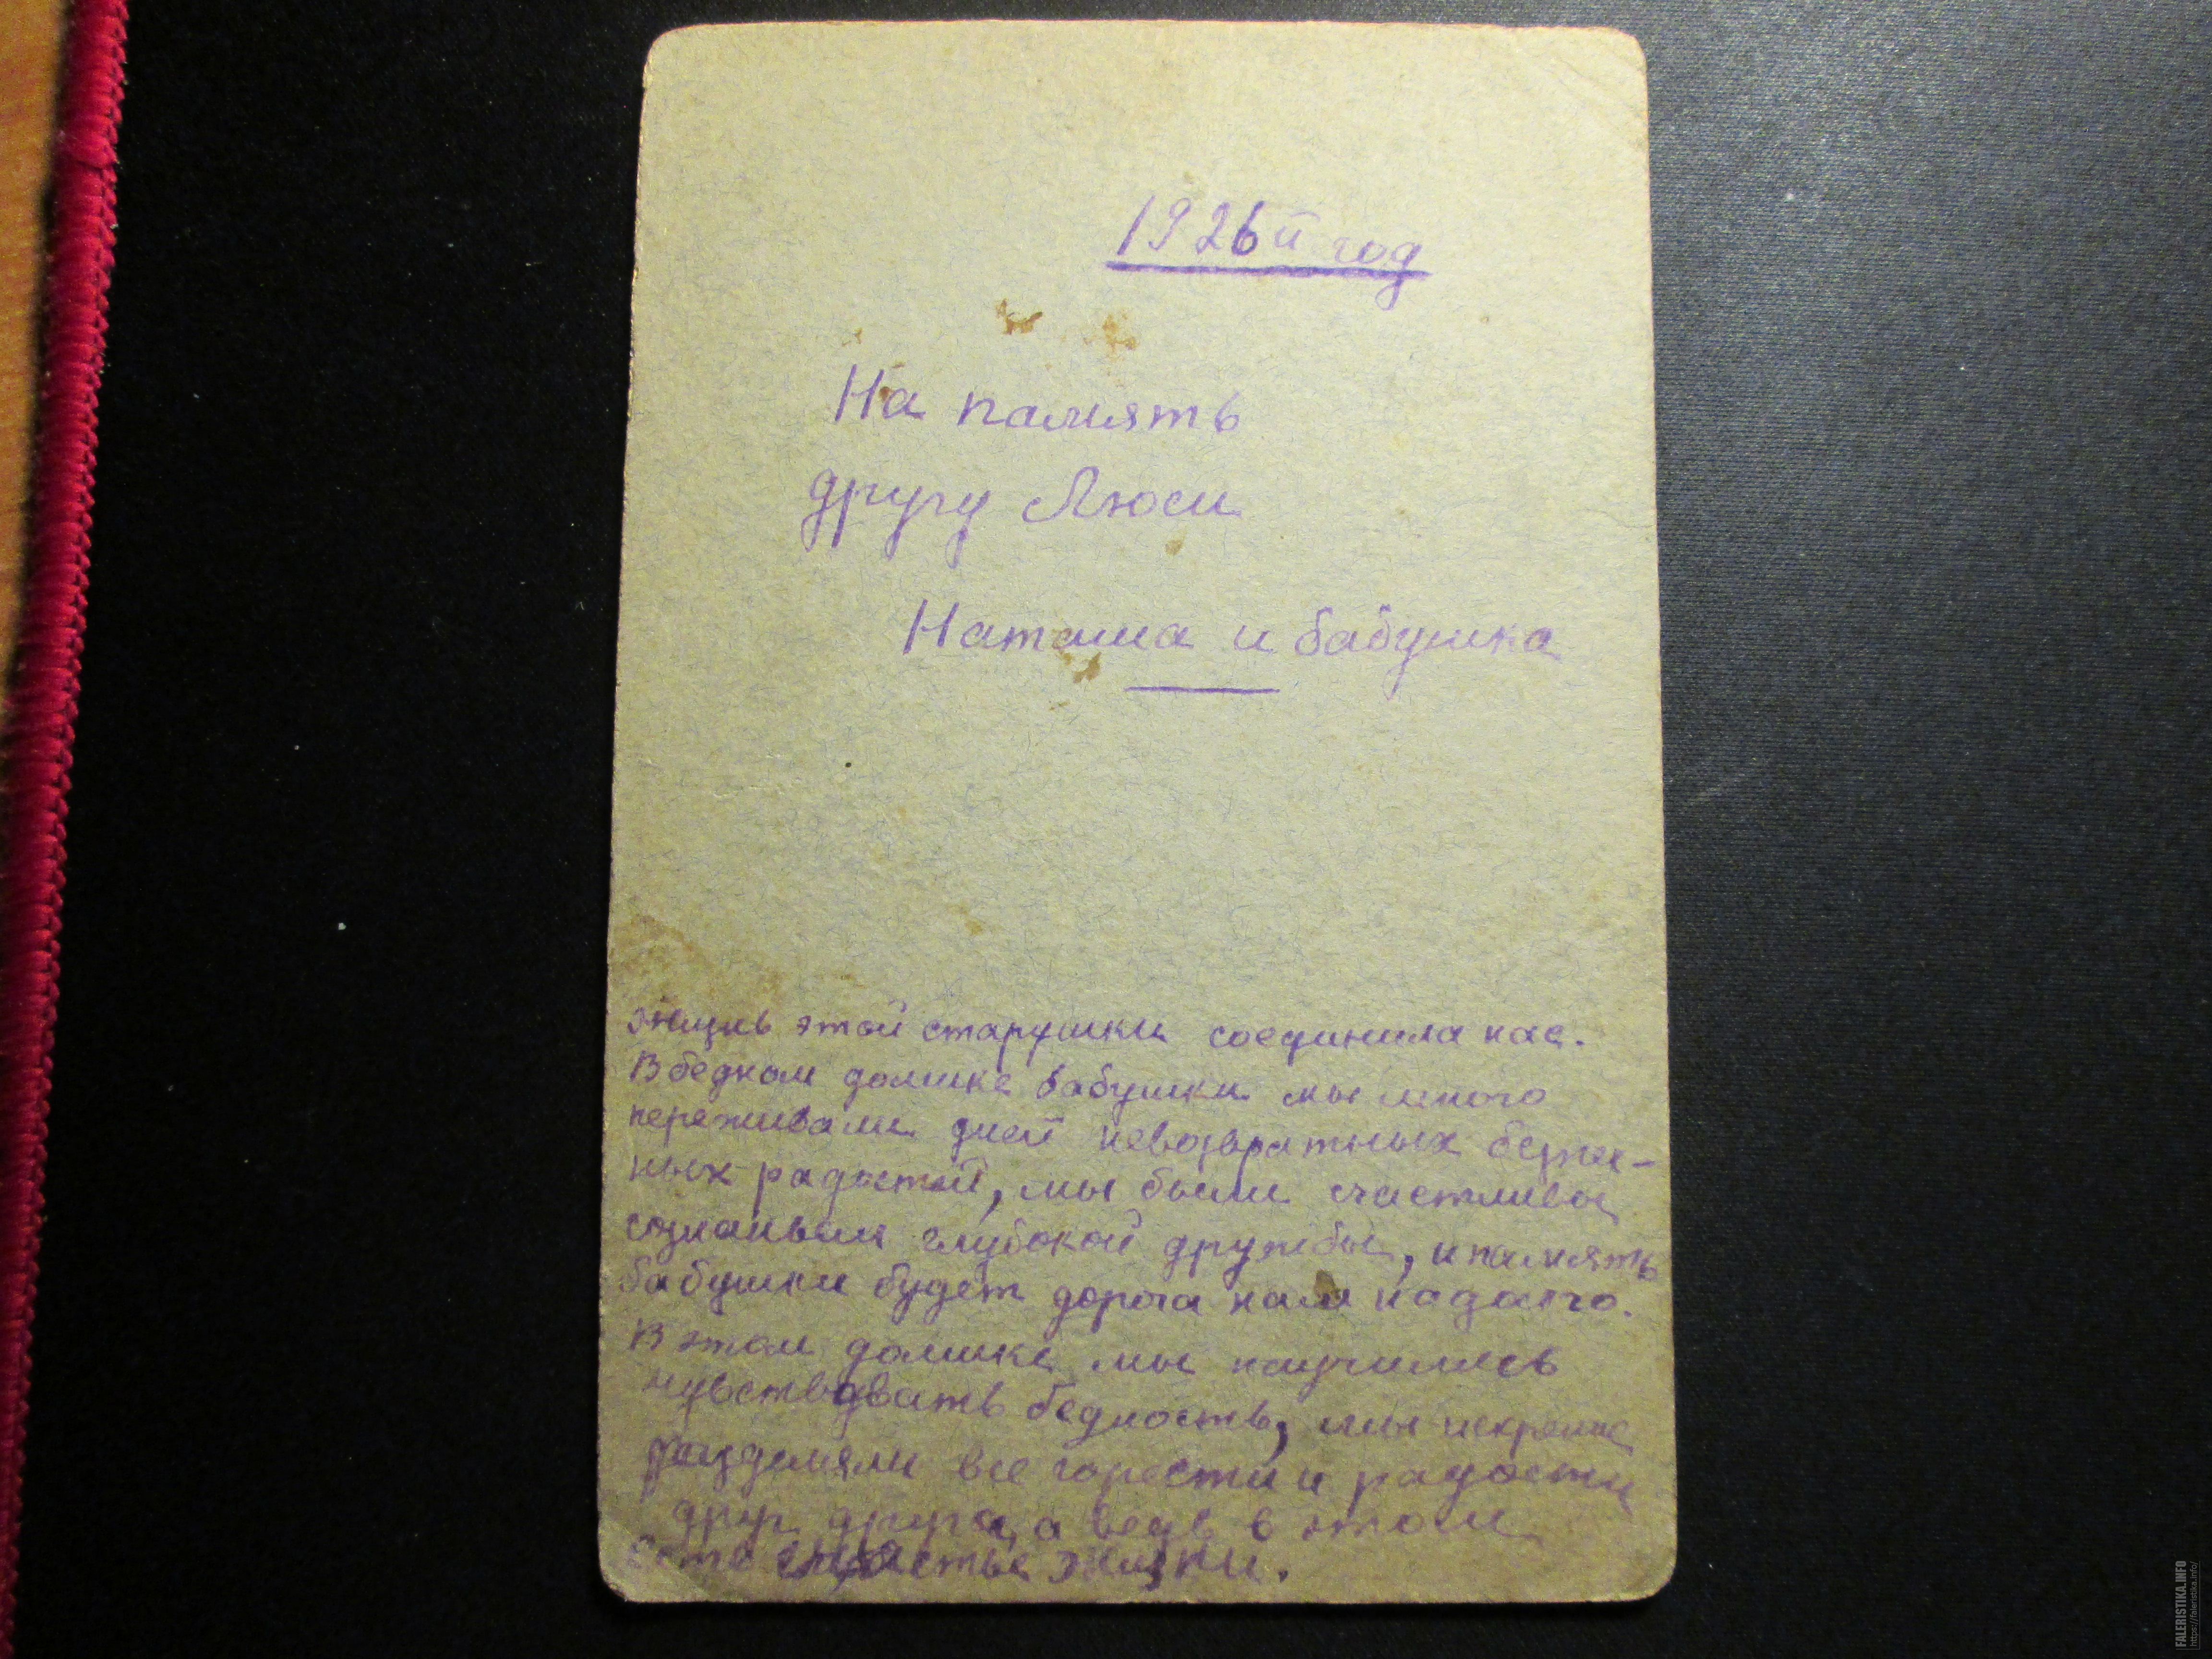 1926й год
На память
другу Люси
Наташа и бабушка
жизнь этой старушки соединила нас.
В бедном домике бабушки мы много
переживали дней невозвратных безпеч-
ных радостей, мы были счастливы
сознаньем глубокой дружбы, и память
бабушки будет дорога нам надолго.
В этом домике мы научились
чувствовать бедность, мы искренне
разделяли все горести и радости
друг друга, а ведь в этом
есть счастье жизни.
FALERISTIKA.INFO
https://faleristika.info/